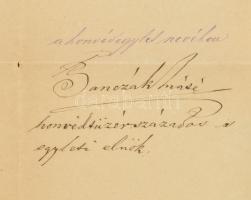 a honvédegylet nevében
Banczák
honvédtüzérszázados s
egyleti elnök.